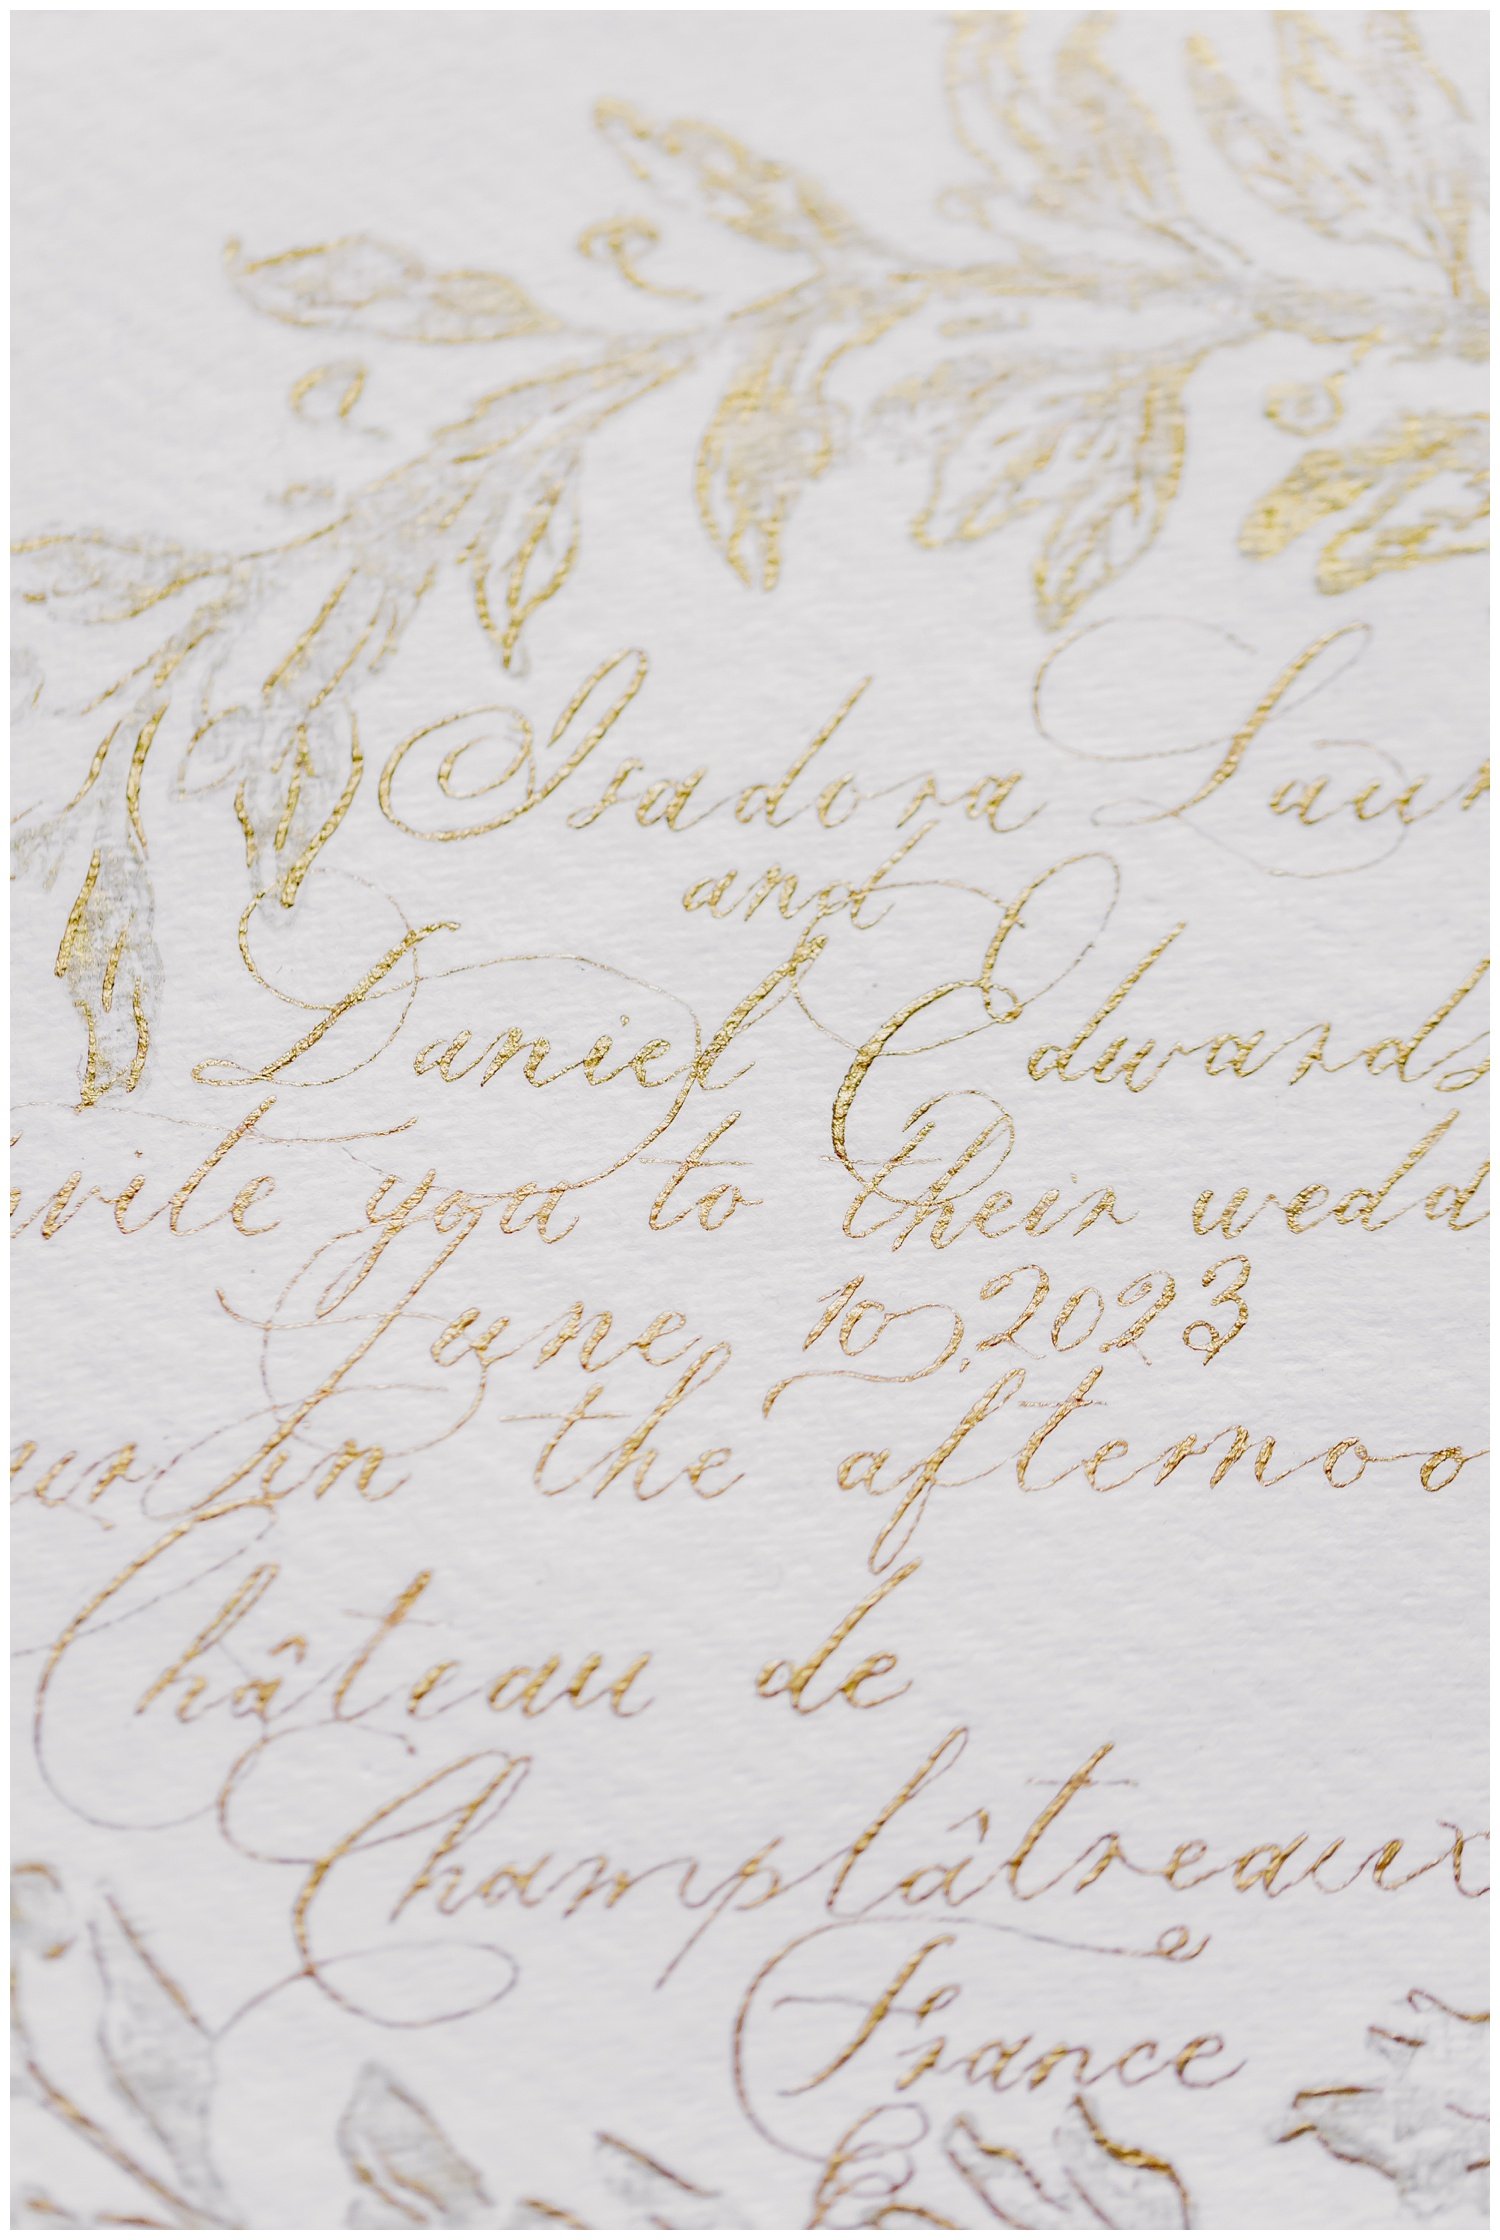 Isadora Laur
and
Daniel Edwards
nvite you to their wedd
June 10, 2023
ur in the afternoo
Château de
Champlâtreux
France